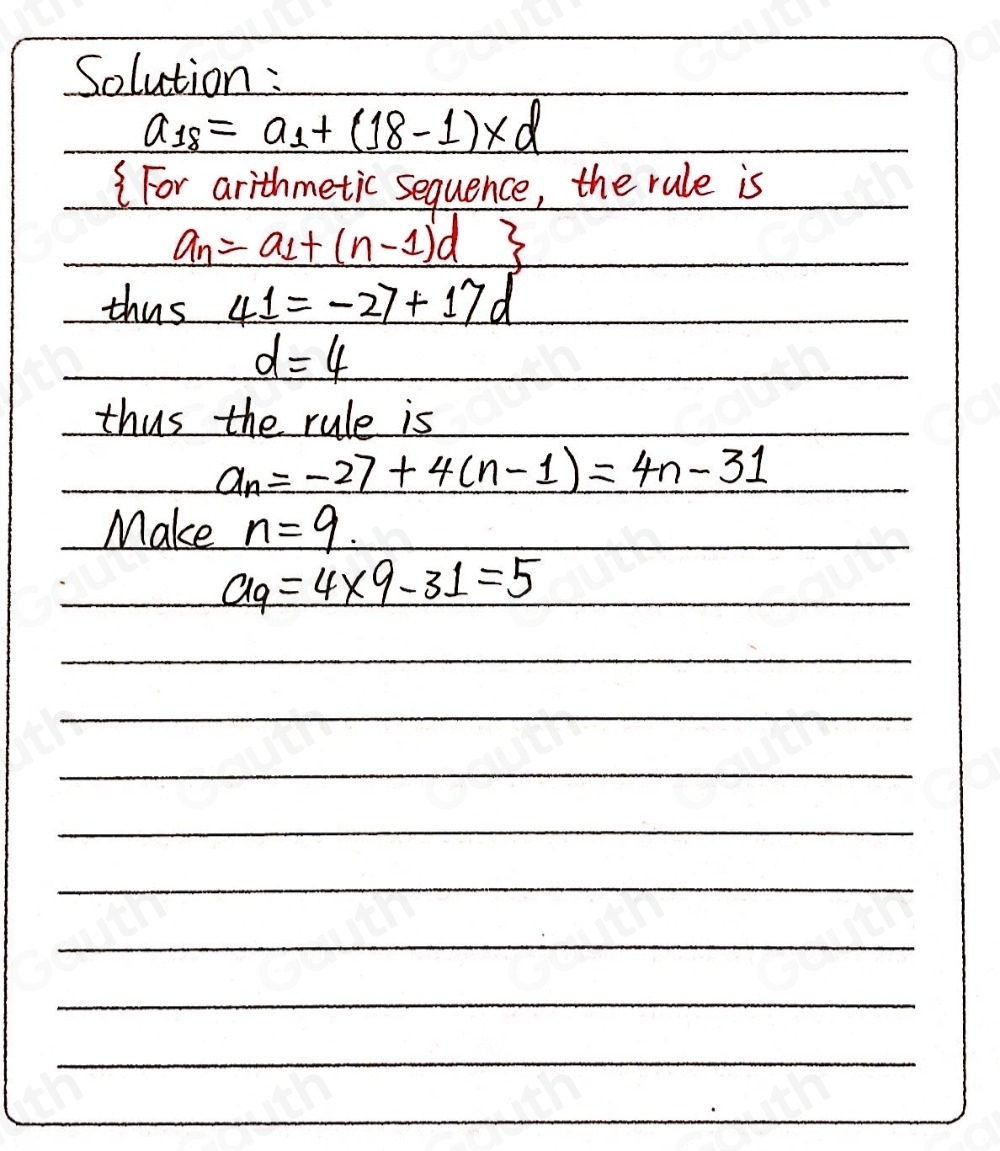 Solution:
a₁₈ = a₁ + (18-1)×d
{For arithmetic sequence, the rule is
aₙ = a₁ + (n-1)d }
thus 41 = -27 + 17d
d = 4
thus the rule is
aₙ = -27 + 4(n-1) = 4n-31
Make n=9.
a₉ = 4×9-31 = 5